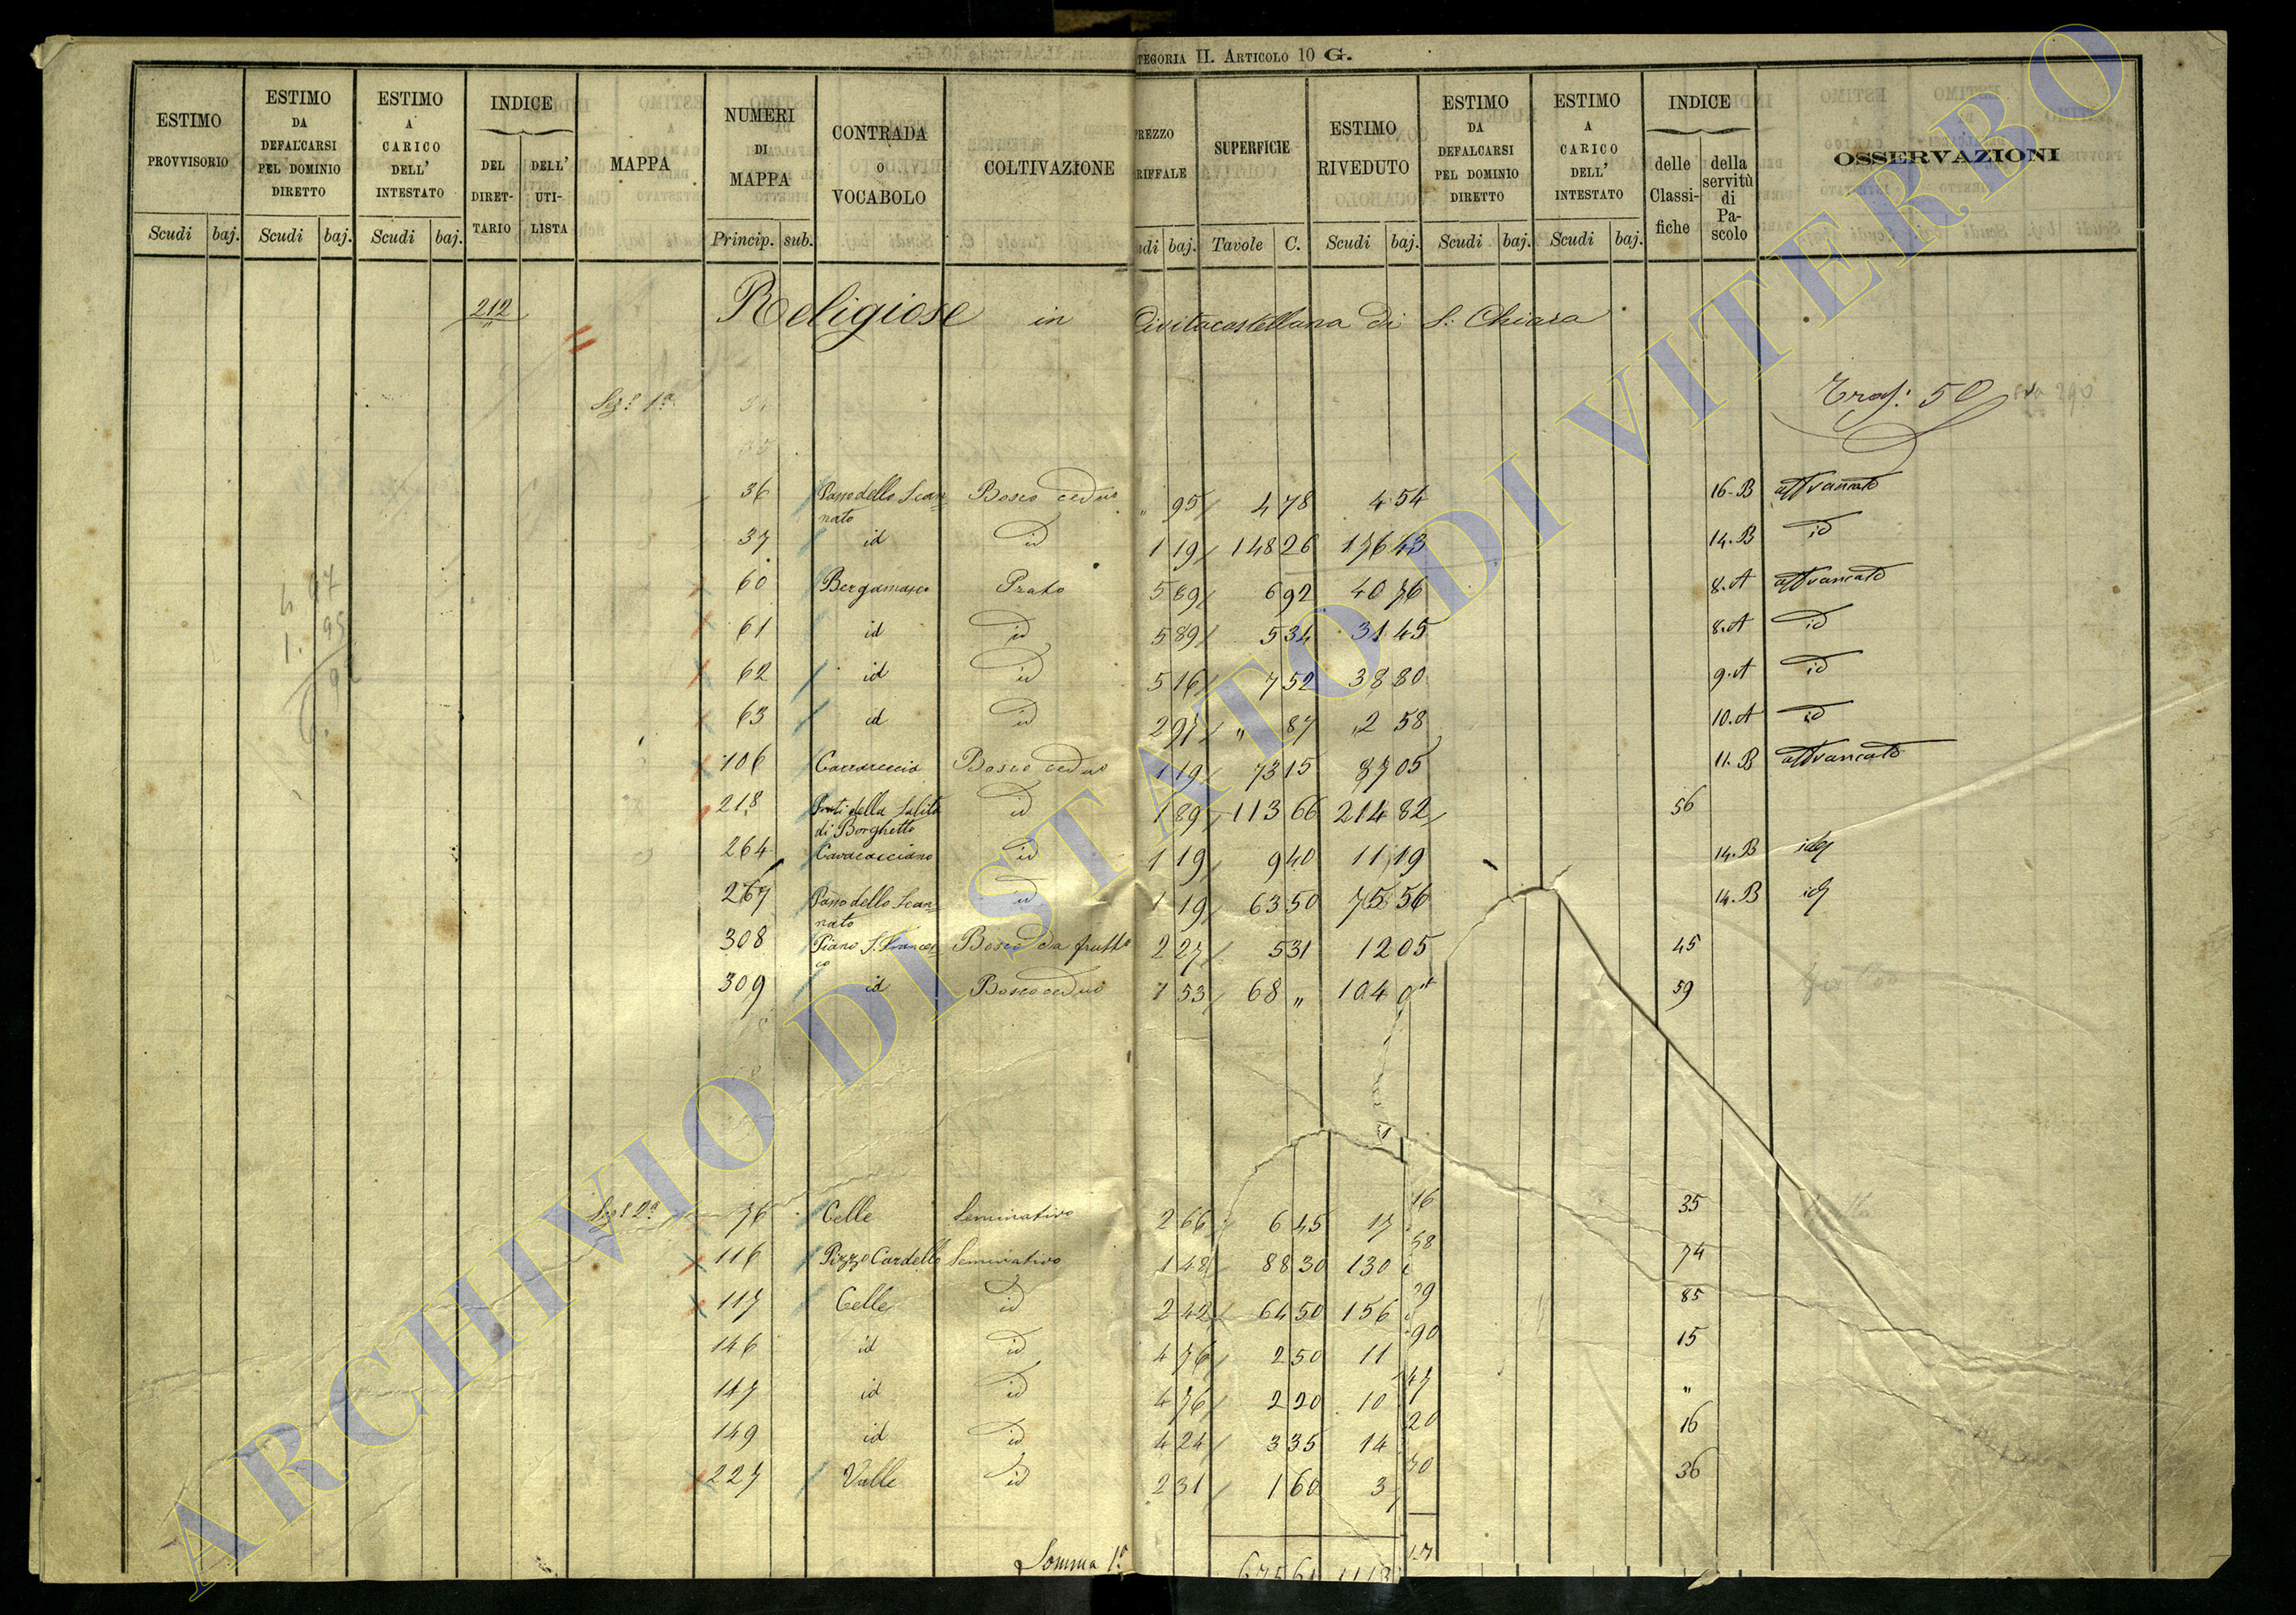 TEGORIA II. ARTICOLO 10 G.
ESTIMO PROVVISORIO
ESTIMO DA DEFALCARSI PEL DOMINIO DIRETTO
ESTIMO A CARICO DELL' INTESTATO
INDICE
DEL DIRET-TARIO
DELL' UTI-LISTA
MAPPA
NUMERI DI MAPPA
CONTRADA O VOCABOLO
COLTIVAZIONE
SUPERFICIE
ESTIMO RIVEDUTO
ESTIMO DA DEFALCARSI PEL DOMINIO DIRETTO
ESTIMO A CARICO DELL' INTESTATO
INDICE
delle Classi-fiche
della servitù di Pa-scolo
OSSERVAZIONI
Scudi baj. Scudi baj. Scudi baj. Princip. sub. baj. Tavole C. Scudi baj. Scudi baj. Scudi baj.
212 Religiose in Civitacastellana di S. Chiara
Sez.e 1a 50
36 Passo dello Scannato Bosco ceduo " 95 4 78 4 54 16-B affrancato
37 id id 1 19 148 26 176 43 14.B id
60 Bergamasco Prato 5 89 6 92 40 76 8.A affrancato
61 id id 5 89 5 34 31 45 8.A id
62 id id 5 16 7 52 38 80 9.A id
63 id id 2 97 " 87 2 58 10.A id
106 Carrareccia Bosco ceduo 1 19 73 15 87 05 11.B affrancato
218 Prati della Salita di Borghetto id 1 89 113 66 214 82 56
264 Cavacacciano id 1 19 9 40 11 19 14.B id
267 Passo dello Scannato id 1 19 63 50 75 56 14.B id
308 Piano S. Francesco Bosco da frutto 2 27 5 31 12 05 45
309 id Bosco ceduo 1 53 68 " 104 59
Sez.e 2a 76 Celle Seminativo 2 66 6 45 17 16 35
116 Pizzo Cardello Seminativo 1 48 88 30 130 58 74
117 Celle id 2 42 64 50 156 85
146 id id 4 76 2 50 11 90 15
147 id id 4 76 2 20 10 47 "
149 id id 4 24 3 35 14 20 16
227 Valle id 2 31 1 60 3 70 36
Somma 1a 675 61
ARCHIVIO DI STATO DI VITERBO